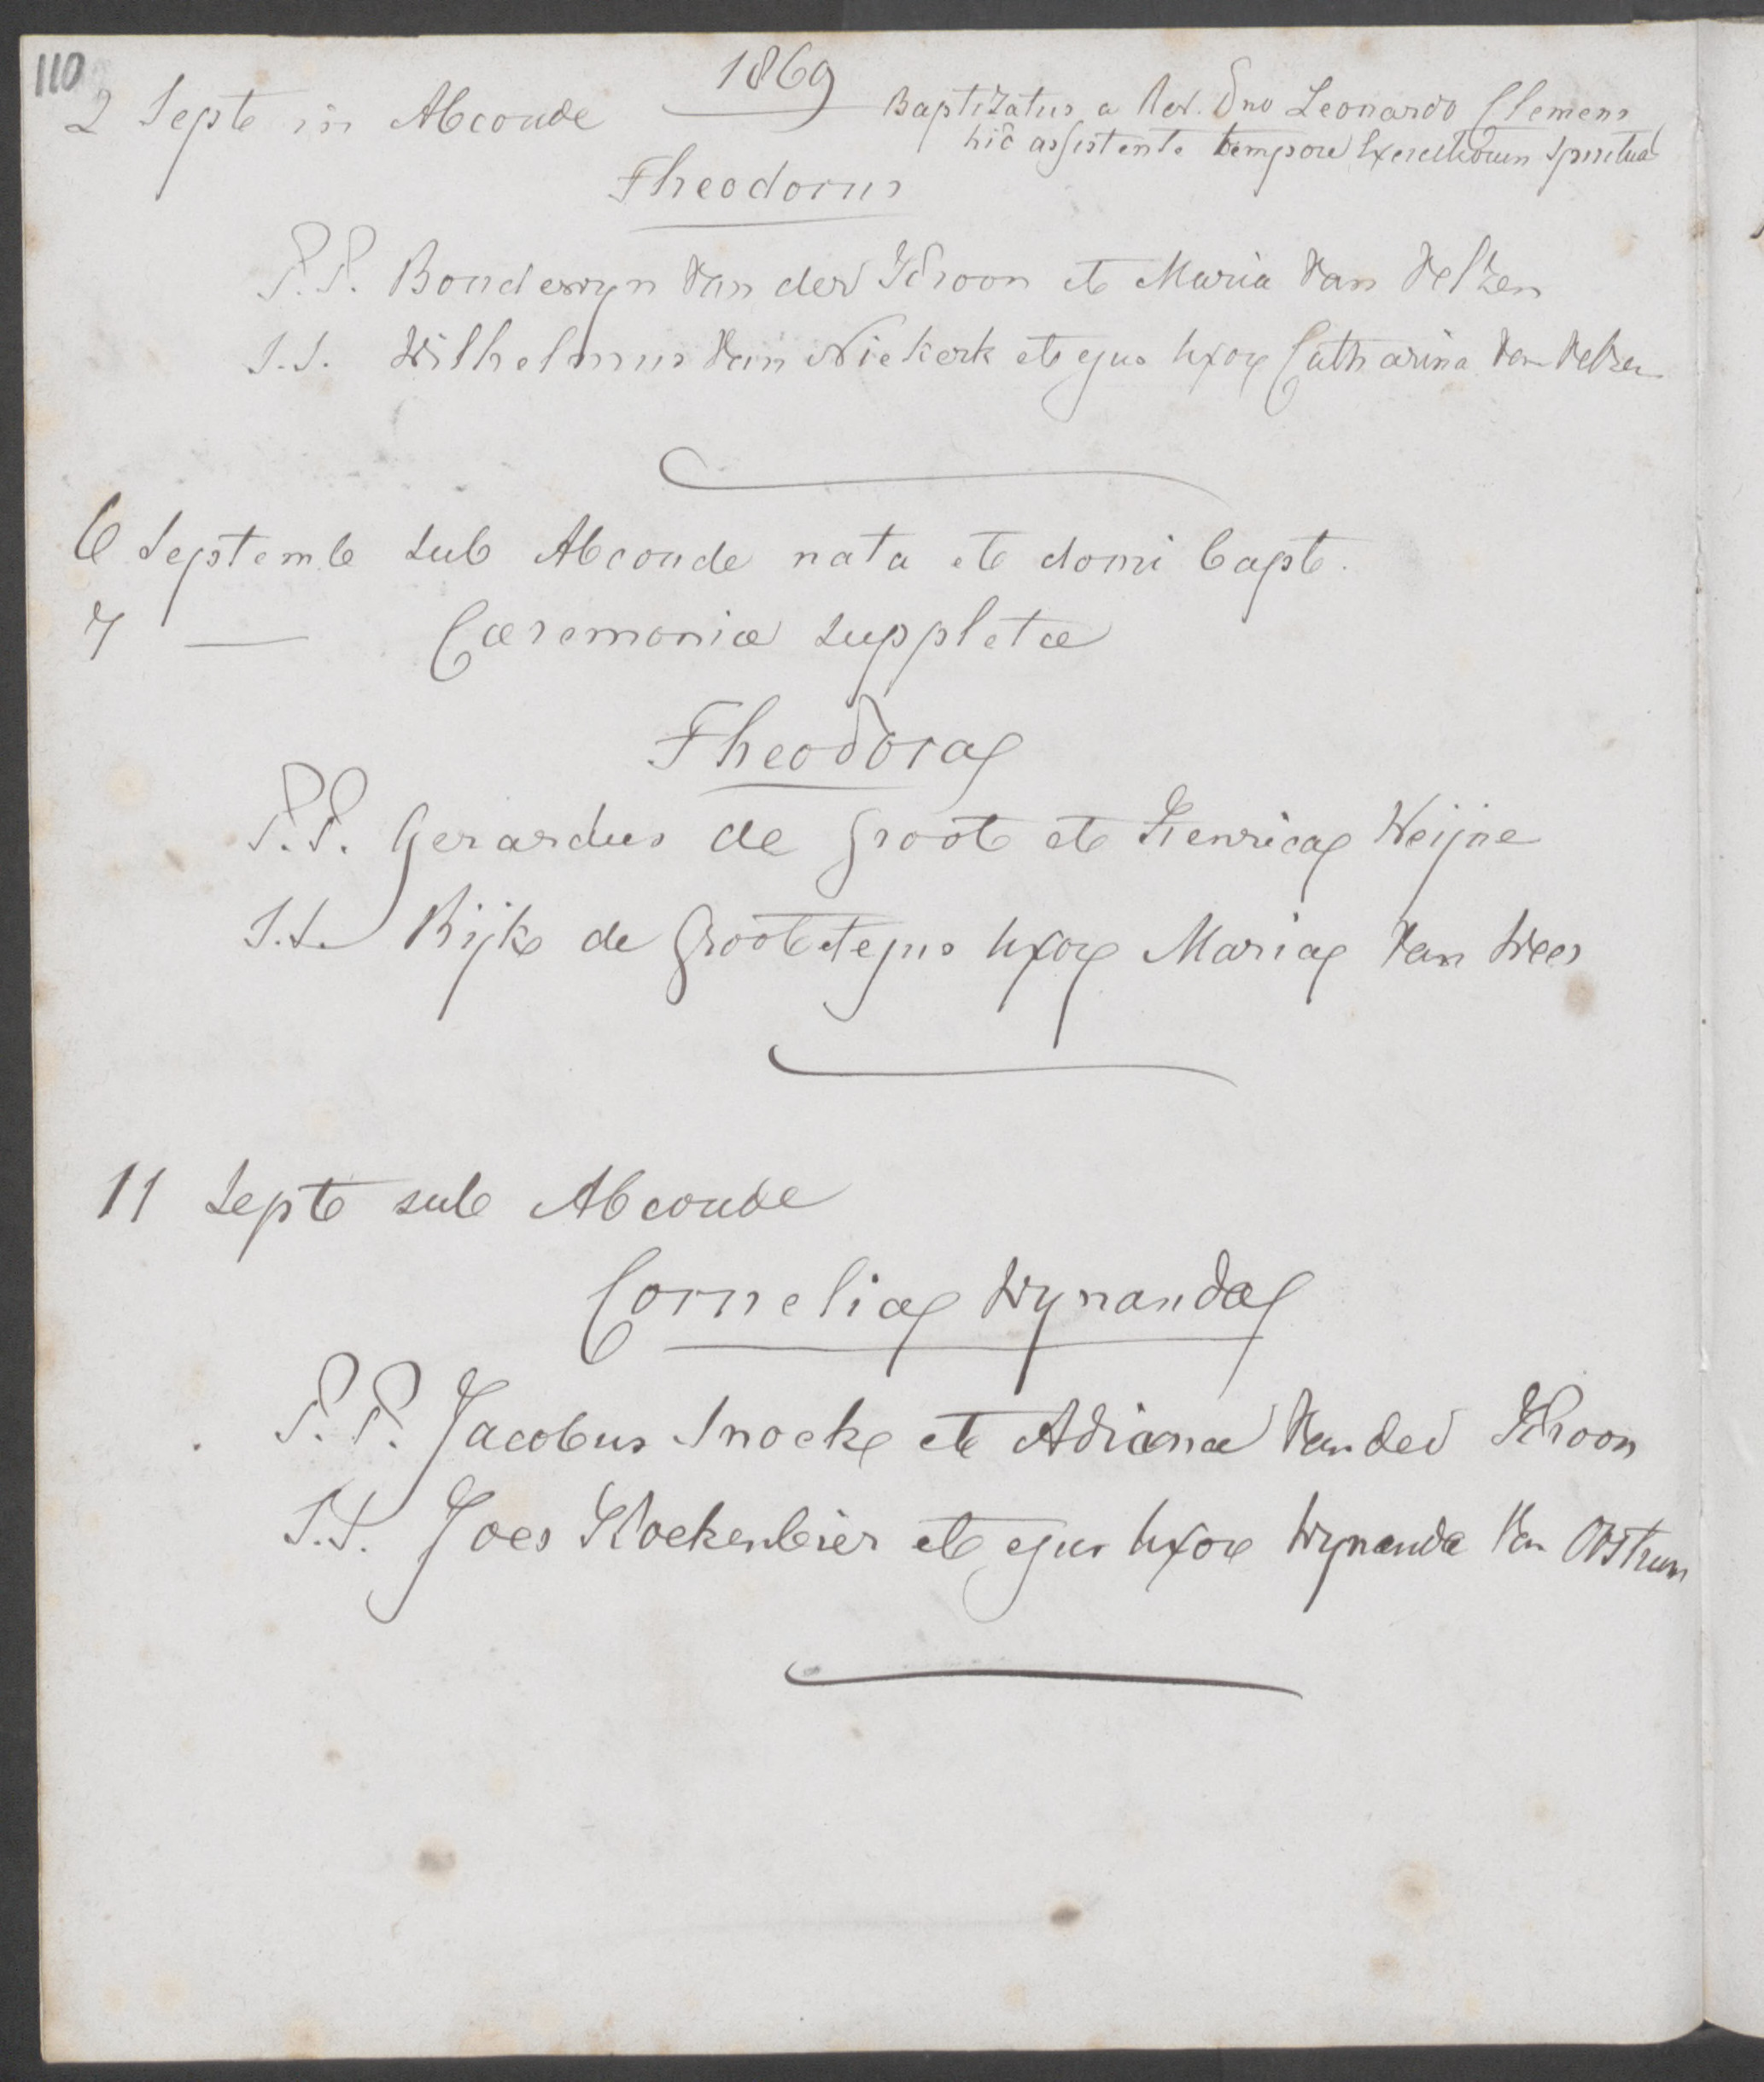 110
1869
2 Sept in Abcoude
Baptizatus a Rev. Dno Leonardo Clemens
hic assistente tempore Exercitiorum Spiritual
Theodorus
P.P. Boudewyn van der Schoon et Maria van Velzen
S.S. Wilhelmus van Niekerk et ejus uxor Catharina van Velzen
6 Septemb sub Abcoude nata et domi bapt.
7 — Cæremoniæ suppletæ
Theodora
P.P. Gerardus de Groot et Henrica Weijne
S.S. Rijk de Groot et ejus uxor Maria van Wees
11 Sept sub Abcoude
Cornelia Wynanda
P.P. Jacobus Snoek et Adriana van der Schoon
S.S. Joes Kloekenbier et ejus uxor Wynanda van Ostrum